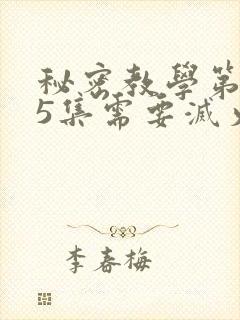 秘密教學第
5集需要滅火
李春梅